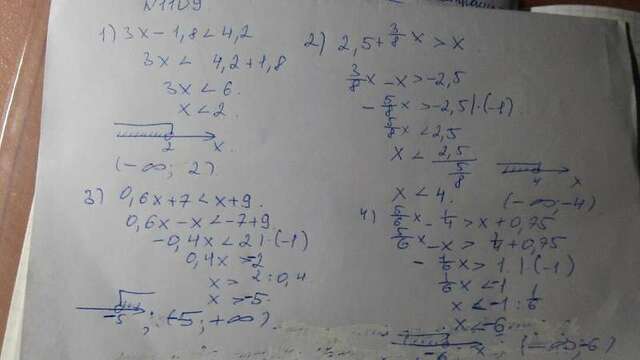 N1109
1) 3x - 1,8 < 4,2
3x < 4,2 + 1,8
3x < 6.
x < 2
2 x
(-∞; 2).
2) 2,5 + 3/8 x > x
3/8 x - x > -2,5
- 5/8 x > -2,5 | ·(-1)
5/8 x < 2,5
x < 2,5 / 5/8
x < 4.
4 x
(-∞; -4)
3) 0,6x + 7 < x + 9.
0,6x - x < -7 + 9.
-0,4x < 2 | ·(-1)
0,4x > -2
x > -2 : 0,4
x > -5.
-5 ; (-5; +∞).
4) 5/6 x - 1/4 > x + 0,75
5/6 x - x > 1/4 + 0,75
- 1/6 x > 1. | ·(-1)
1/6 x < -1
x < -1 : 1/6
x < -6
-6 x (-∞; -6)